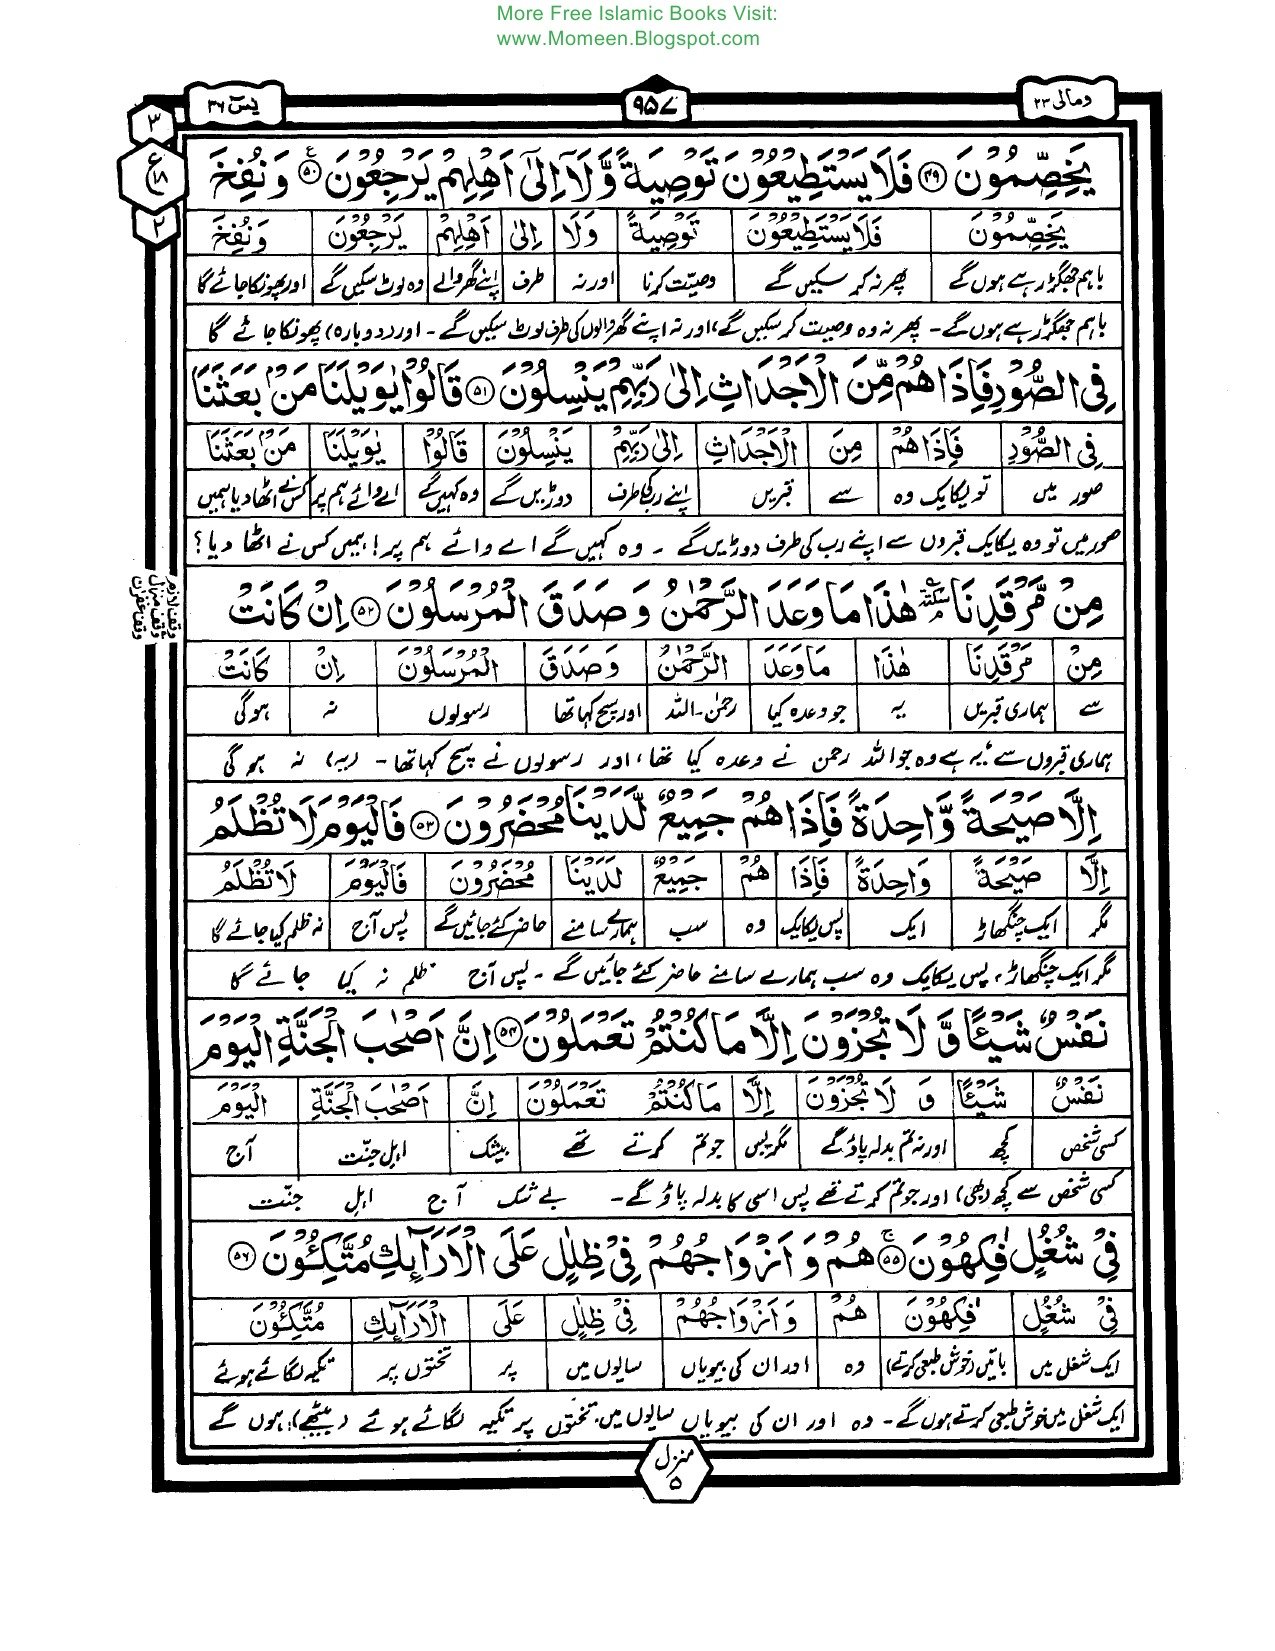 More Free Islamic Books Visit:
www.Momeen.Blogspot.com
ومالی ۲۳
۹۵۷
یٰسٓ ۳۶
۳
ع
۱۸
۲
يَخِصِّمُوْنَ ﴿۴۹﴾ فَلَا يَسْتَطِيْعُوْنَ تَوْصِيَةً وَّلَاۤ اِلٰۤى اَهْلِهِمْ يَرْجِعُوْنَ ﴿۵۰﴾ وَنُفِخَ
يَخِصِّمُوْنَ فَلَا يَسْتَطِيْعُوْنَ تَوْصِيَةً وَلَا اِلٰى اَهْلِهِمْ يَرْجِعُوْنَ وَنُفِخَ
باہم جھگڑ رہے ہوں گے پھر نہ کر سکیں گے وصیت کرنا اور نہ طرف اپنے گھر والے وہ لوٹ سکیں گے اور پھونکا جائے گا
باہم جھگڑ رہے ہوں گے۔ پھر نہ وہ وصیت کر سکیں گے، اور نہ اپنے گھر والوں کی طرف لوٹ سکیں گے۔ اور (دوبارہ) پھونکا جائے گا
فِى الصُّوْرِ فَاِذَا هُمْ مِّنَ الْاَجْدَاثِ اِلٰى رَبِّهِمْ يَنْسِلُوْنَ ﴿۵۱﴾ قَالُوْا يٰوَيْلَنَا مَنْۢ بَعَثَنَا
فِى الصُّوْرِ فَاِذَا هُمْ مِنَ الْاَجْدَاثِ اِلٰى رَبِّهِمْ يَنْسِلُوْنَ قَالُوْا يٰوَيْلَنَا مَنْۢ بَعَثَنَا
صور میں تو یکایک وہ سے قبریں اپنے رب کی طرف دوڑیں گے وہ کہیں گے اے وائے ہم پر کس نے اٹھا دیا ہمیں
صور میں تو وہ یکایک قبروں سے اپنے رب کی طرف دوڑیں گے ۔ وہ کہیں گے اے وائے ہم پر! ہمیں کس نے اٹھا دیا؟
مِنْ مَّرْقَدِنَا سكتة هٰذَا مَا وَعَدَ الرَّحْمٰنُ وَصَدَقَ الْمُرْسَلُوْنَ ﴿۵۲﴾ اِنْ كَانَتْ
مِنْ مَرْقَدِنَا هٰذَا مَا وَعَدَ الرَّحْمٰنُ وَصَدَقَ الْمُرْسَلُوْنَ اِنْ كَانَتْ
سے ہماری قبریں یہ جو وعدہ کیا رحمٰن۔اللہ اور سچ کہا تھا رسولوں نہ ہوگی
ہماری قبروں سے، یہ ہے وہ جو اللہ رحمن نے وعدہ کیا تھا، اور رسولوں نے سچ کہا تھا۔ (یہ) نہ ہو گی
اِلَّا صَيْحَةً وَّاحِدَةً فَاِذَا هُمْ جَمِيْعٌ لَّدَيْنَا مُحْضَرُوْنَ ﴿۵۳﴾ فَالْيَوْمَ لَا تُظْلَمُ
اِلَّا صَيْحَةً وَاحِدَةً فَاِذَا هُمْ جَمِيْعٌ لَدَيْنَا مُحْضَرُوْنَ فَالْيَوْمَ لَا تُظْلَمُ
مگر ایک چنگھاڑ ایک پس یکایک وہ سب ہمارے سامنے حاضر کئے جائیں گے پس آج نہ ظلم کیا جائے گا
مگر ایک چنگھاڑ، پس یکایک وہ سب ہمارے سامنے حاضر کئے جائیں گے ۔ پس آج ظلم نہ کیا جائے گا
نَفْسٌ شَيْـًٔا وَّلَا تُجْزَوْنَ اِلَّا مَا كُنْتُمْ تَعْمَلُوْنَ ﴿۵۴﴾ اِنَّ اَصْحٰبَ الْجَنَّةِ الْيَوْمَ
نَفْسٌ شَيْـًٔا وَ لَا تُجْزَوْنَ اِلَّا مَا كُنْتُمْ تَعْمَلُوْنَ اِنَّ اَصْحٰبَ الْجَنَّةِ الْيَوْمَ
کسی شخص کچھ اور نہ تم بدلہ پاؤ گے مگر بس جو تم کرتے تھے بیشک اہل جنّت آج
کسی شخص سے کچھ (بھی) اور جو تم کرتے تھے پس اسی کا بدلہ پاؤ گے۔ بے شک آج اہل جنّت
فِىْ شُغُلٍ فٰكِهُوْنَ ﴿۵۵﴾ هُمْ وَاَزْوَاجُهُمْ فِىْ ظِلٰلٍ عَلَى الْاَرَآئِكِ مُتَّكِـُٔوْنَ ﴿۵۶﴾
فِىْ شُغُلٍ فٰكِهُوْنَ هُمْ وَاَزْوَاجُهُمْ فِىْ ظِلٰلٍ عَلَى الْاَرَآئِكِ مُتَّكِـُٔوْنَ
ایک شغل میں باتیں (خوش طبعی کرتے) وہ اور ان کی بیویاں سایوں میں پر تختوں پر تکیہ لگائے ہوئے
ایک شغل میں خوش طبعی کرتے ہوں گے۔ وہ اور ان کی بیویاں سایوں میں، تختوں پر تکیہ لگائے ہوئے (بیٹھے) ہوں گے
وقف لازم
وقف منزل
وقف غفران
منزل
۵